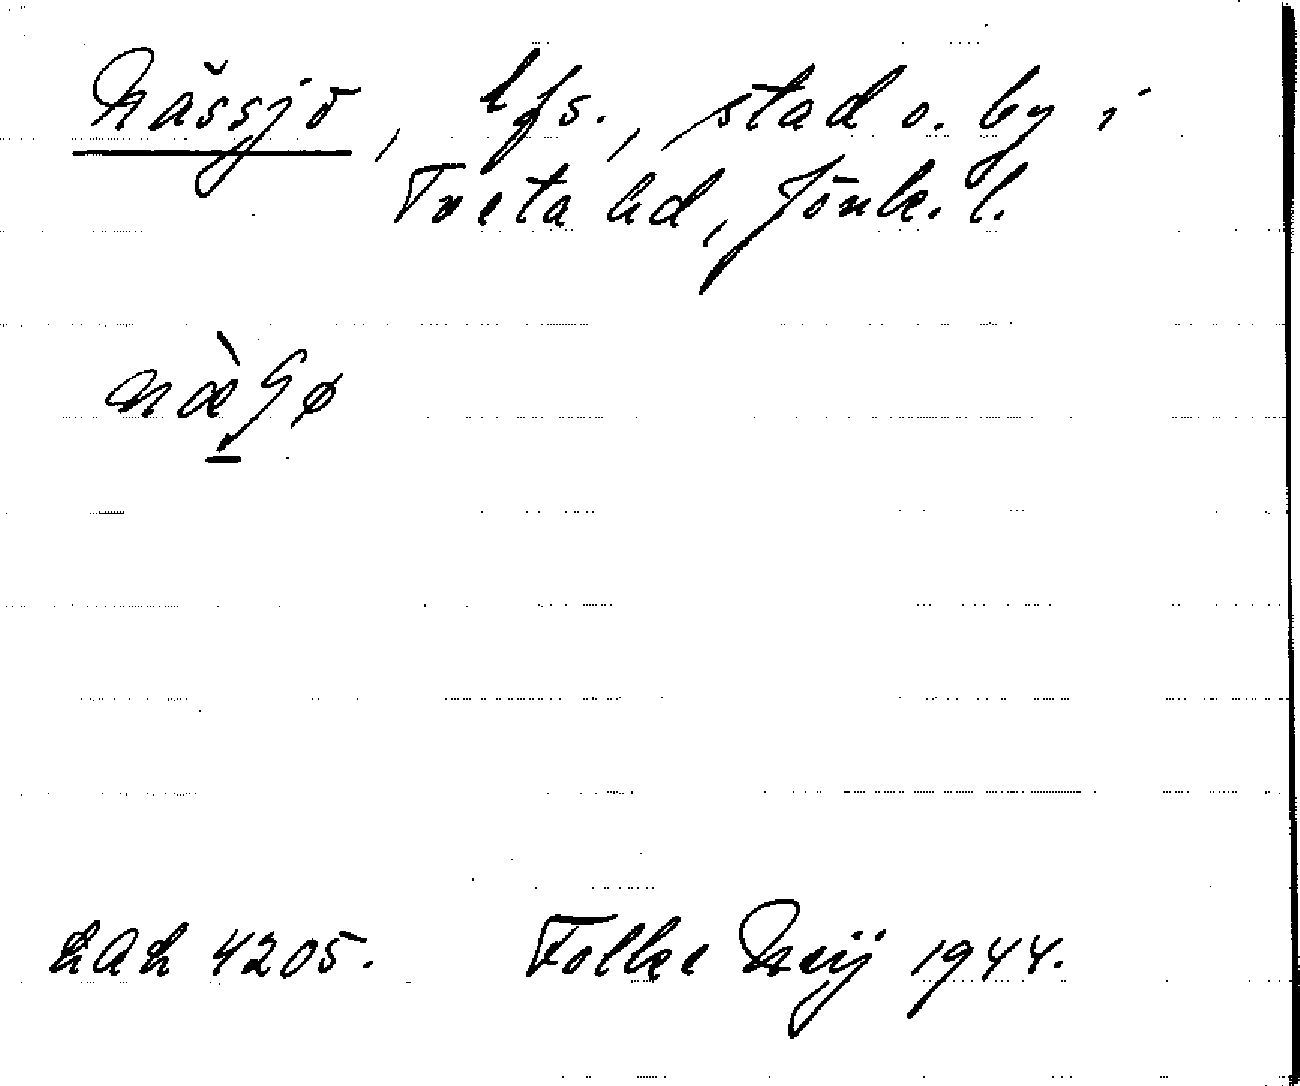 Nässjö, lfs., stad o. by i
Tveta hd, Jönk. l.
næ̀ʃø
LAL 4205. Folke Neij 1944.